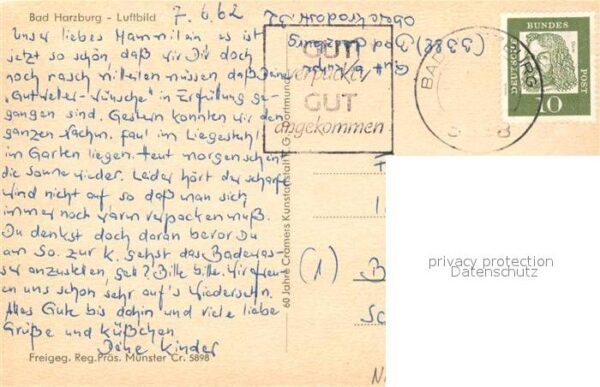 Bad Harzburg - Luftbild
7.6.62
Unser liebes Hammilein es ist
jetzt so schön, daß wir Dir doch
noch rasch mitteilen müssen, daß Deine
"Gut Wetter-Wünsche" in Erfüllung ge-
gangen sind. Gestern konnten wir den
ganzen Nachm. faul im Liegestuhl
im Garten liegen. Heut morgen schien
die Sonne wieder. Leider hört der scharfe
Wind nicht auf so daß man sich
immer noch warm verpacken muß.
Du denkst doch daran bevor Du
am So. zur K. gehst das Badewas-
ser anzustellen, gell? Bitte bitte. Wir freu-
en uns schon sehr auf's Wiedersehn.
Alles Gute bis dahin und viele liebe
Grüße und Küßchen
Deine Kinder
Freigeg. Reg.Präs. Münster Cr. 5898
60 Jahre Cramers Kunstanstalt KG Dortmund
(3388) Bad Harzburg
GUT
verpackt
GUT
angekommen
BAD HARZBURG
DEUTSCHE BUNDESPOST
10
(1) B
Sc
privacy protection
Datenschutz